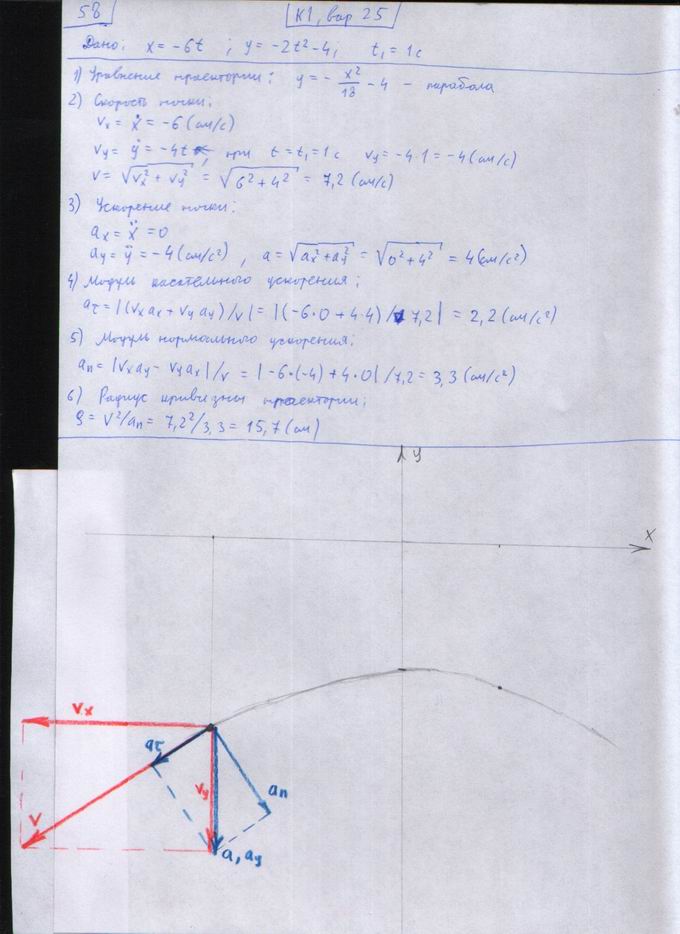 58 К1, вар 25
Дано: x = -6t ; y = -2t² - 4; t₁ = 1 с
1) Уравнение траектории: y = - x²/18 - 4 - парабола
2) Скорость точки:
Vx = ẋ = -6 (см/с)
Vy = ẏ = -4t, при t = t₁ = 1 с Vy = -4·1 = -4 (см/с)
V = √(Vx² + Vy²) = √(6² + 4²) = 7,2 (см/с)
3) Ускорение точки:
ax = ẍ = 0
ay = ÿ = -4 (см/с²), a = √(ax² + ay²) = √(0² + 4²) = 4 (см/с²)
4) Модуль касательного ускорения:
aτ = |(Vx ax + Vy ay)/V| = |(-6·0 + 4·4)/7,2| = 2,2 (см/с²)
5) Модуль нормального ускорения:
an = |Vx ay - Vy ax|/V = |-6·(-4) + 4·0|/7,2 = 3,3 (см/с²)
6) Радиус кривизны траектории:
ρ = V²/an = 7,2²/3,3 = 15,7 (см)
y
x
Vx
aτ
Vy
an
V
a, ay